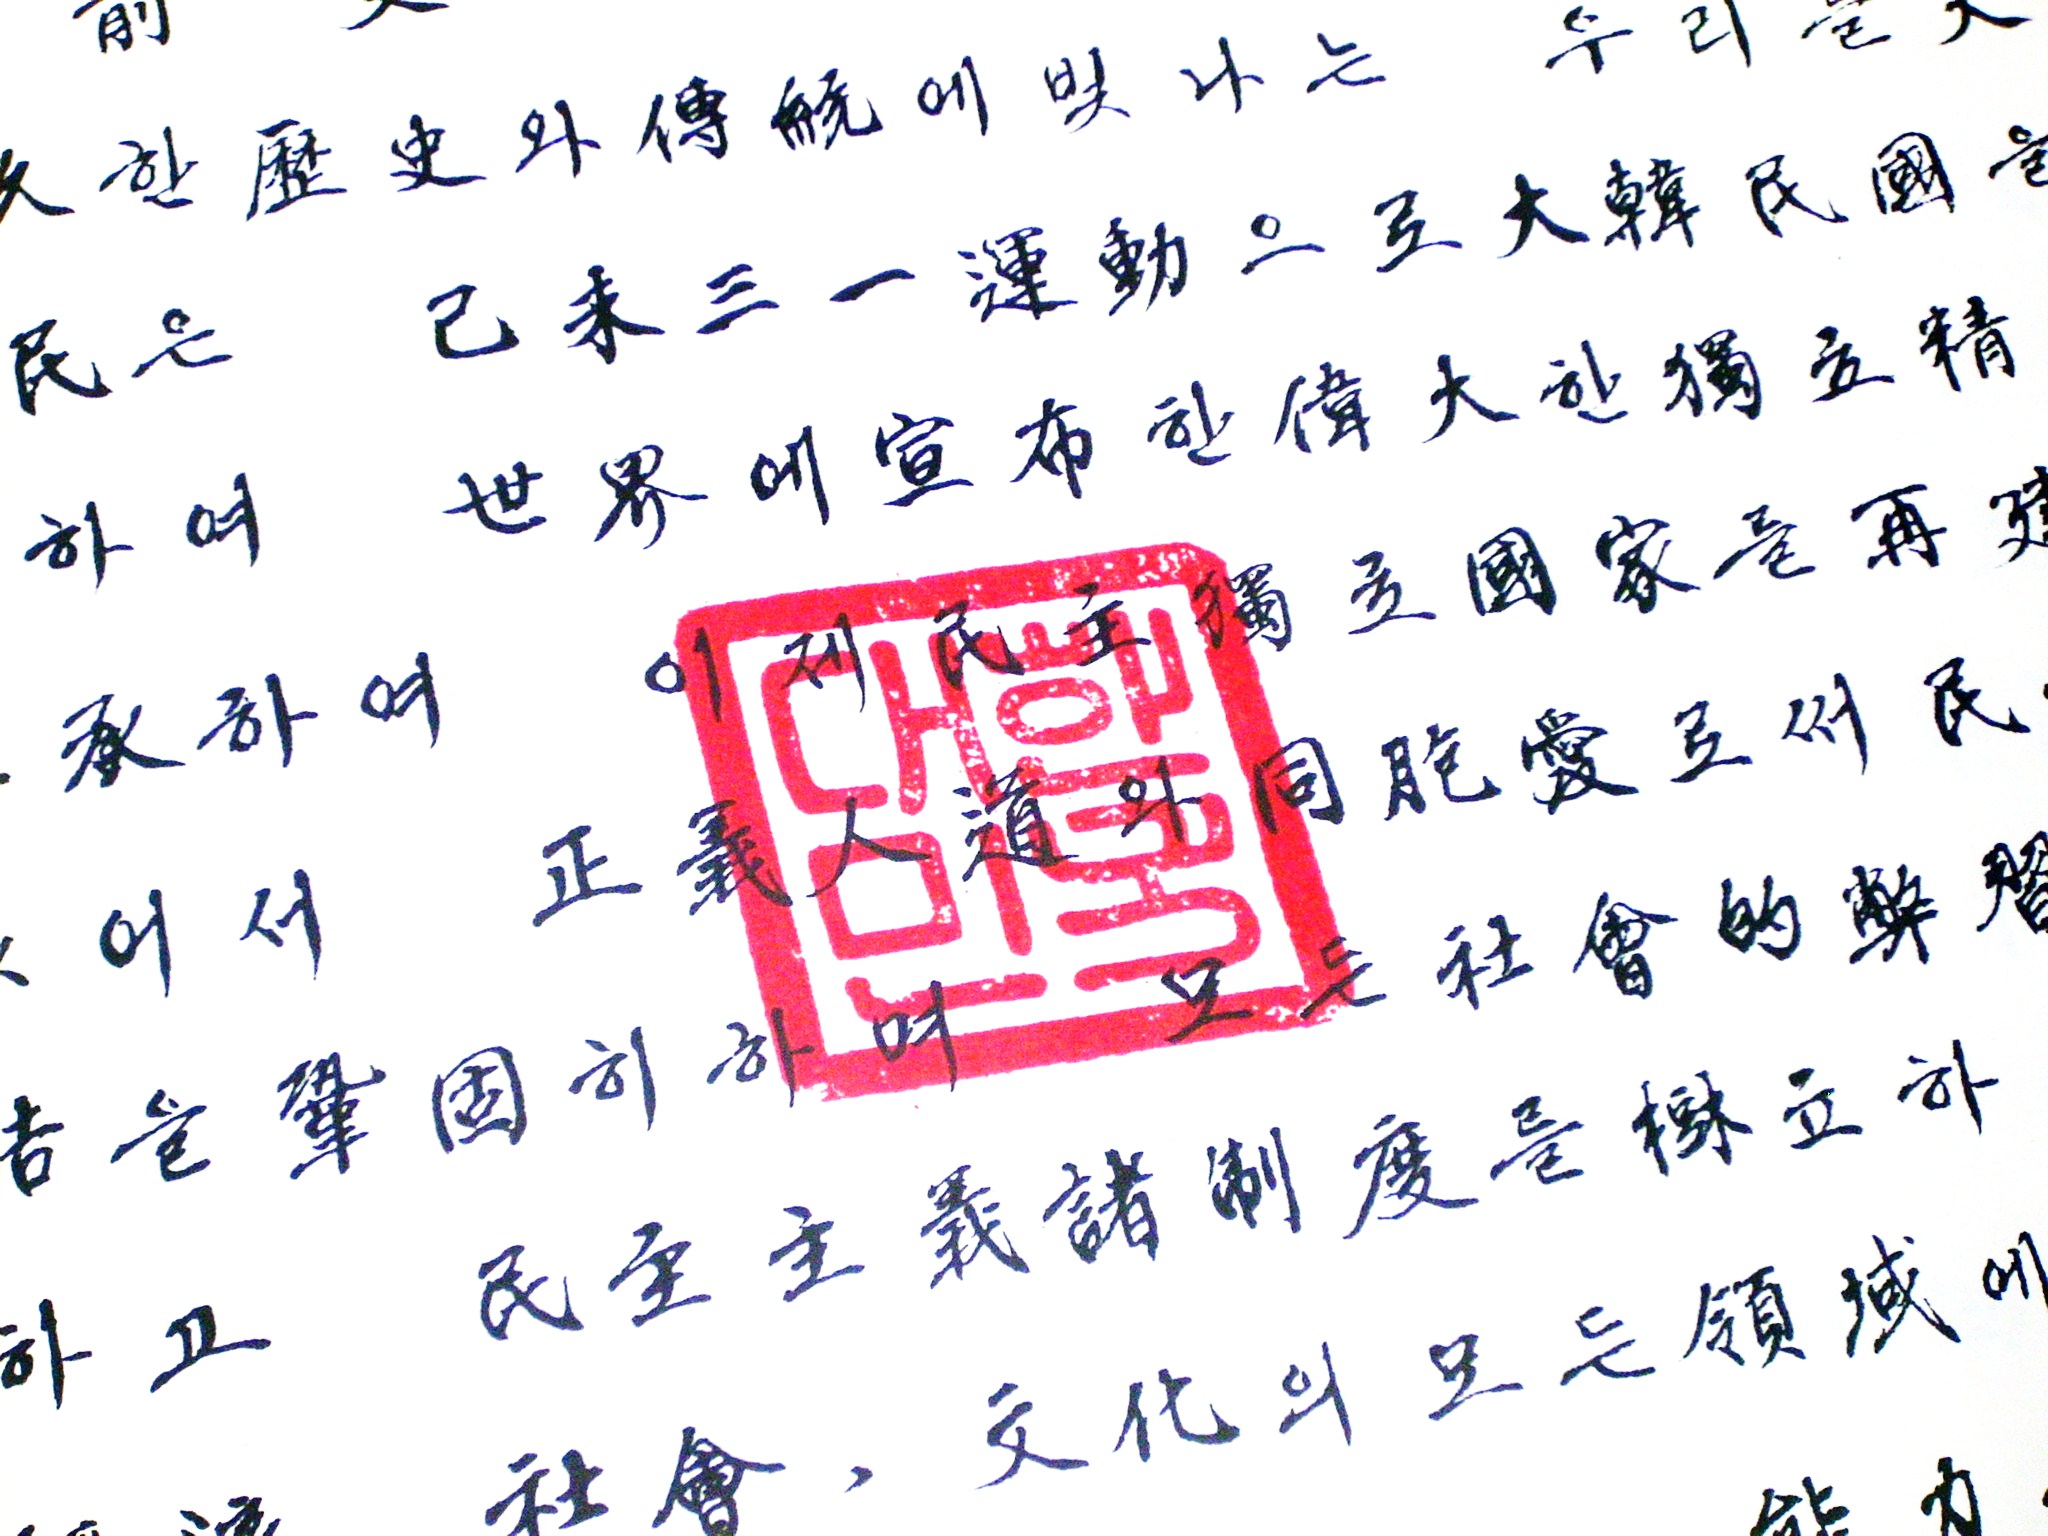 前
한歷史와傳統에빛나는 우리들大
民은 己未三一運動으로大韓民國을
하여 世界에宣布한偉大한獨立精
承하여 이제民主獨立國家를再建
이서 正義人道와同胞愛로써民
을鞏固히하며 모든社會的弊習
하고 民主主義諸制度를樹立하
社會、文化의모든領域에
能力
대한민국